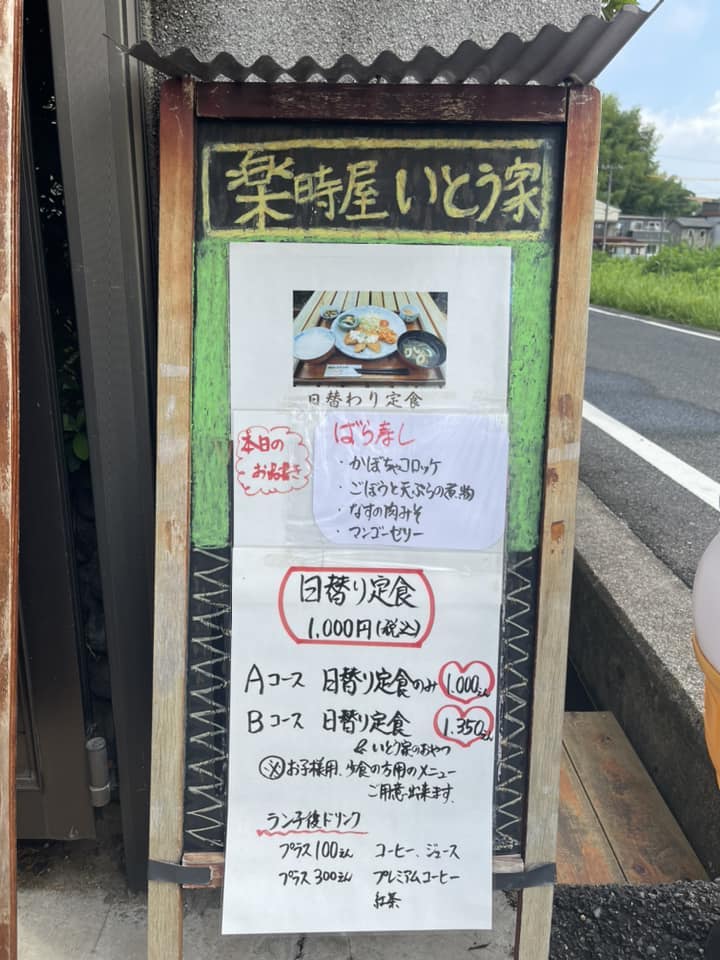 楽時屋 いとう家
日替わり定食
本日の
お品書き
ばら寿し
・かぼちゃコロッケ
・ごぼうと天ぷらの煮物
・なすの肉みそ
・マンゴーゼリー
日替り定食
1,000円(税込)
Aコース 日替り定食のみ 1.000えん
Bコース 日替り定食 1.350えん
& いとう家のおやつ
※お子様用、少食の方用のメニュー
ご用意出来ます。
ランチ後ドリンク
プラス100えん コーヒー、ジュース
プラス300えん プレミアムコーヒー
紅茶